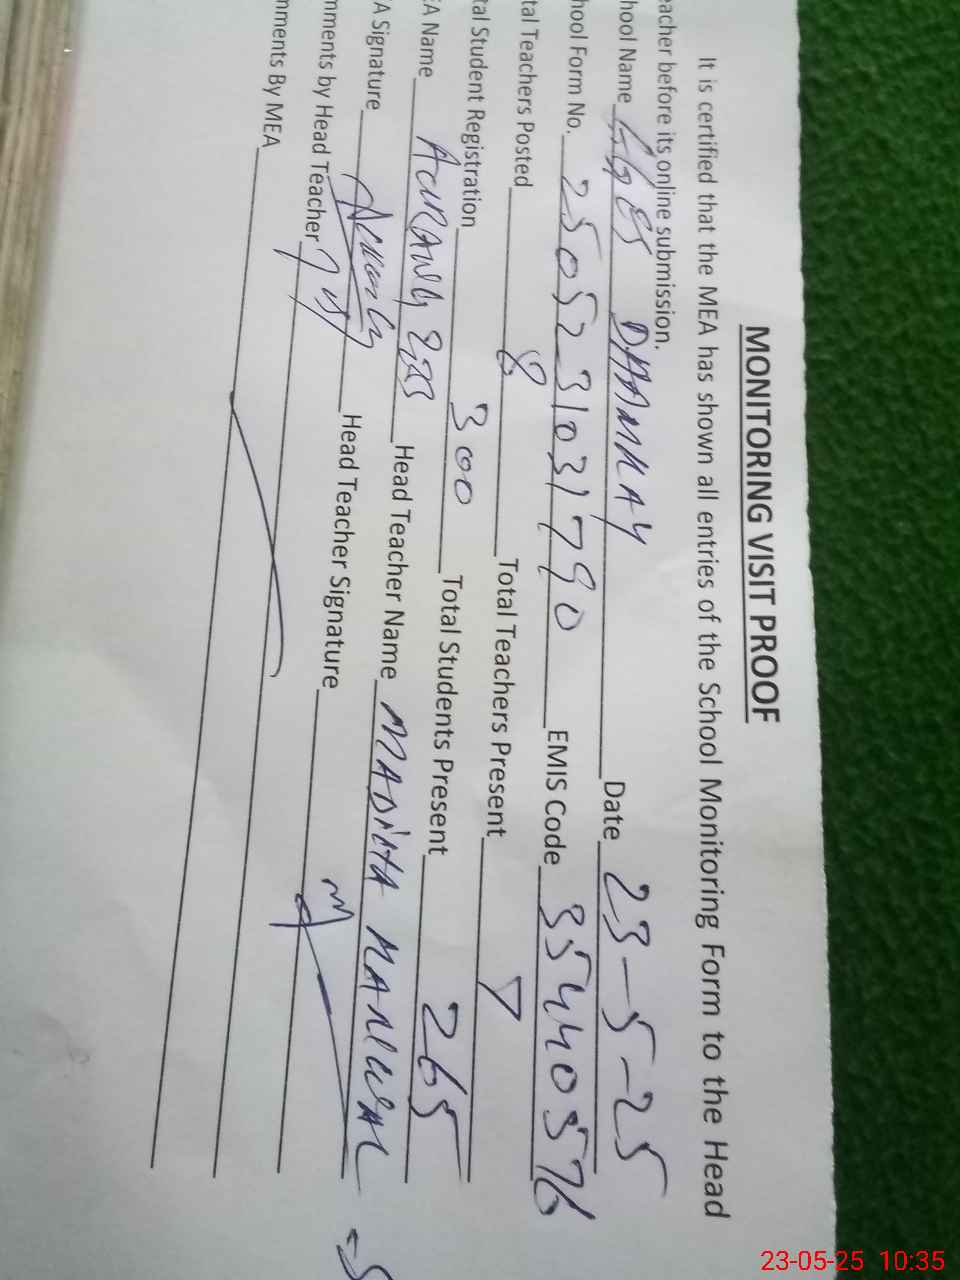 MONITORING VISIT PROOF
It is certified that the MEA has shown all entries of the School Monitoring Form to the Head
eacher before its online submission.
hool Name GGES DHAMKAY Date 23-5-25
hool Form No. 2505231031790 EMIS Code 35440576
tal Teachers Posted 8 Total Teachers Present 7
tal Student Registration 300 Total Students Present 265
EA Name Head Teacher Name MADIHA
A Signature Head Teacher Signature
mments by Head Teacher
mments By MEA
23-05-25 10:35